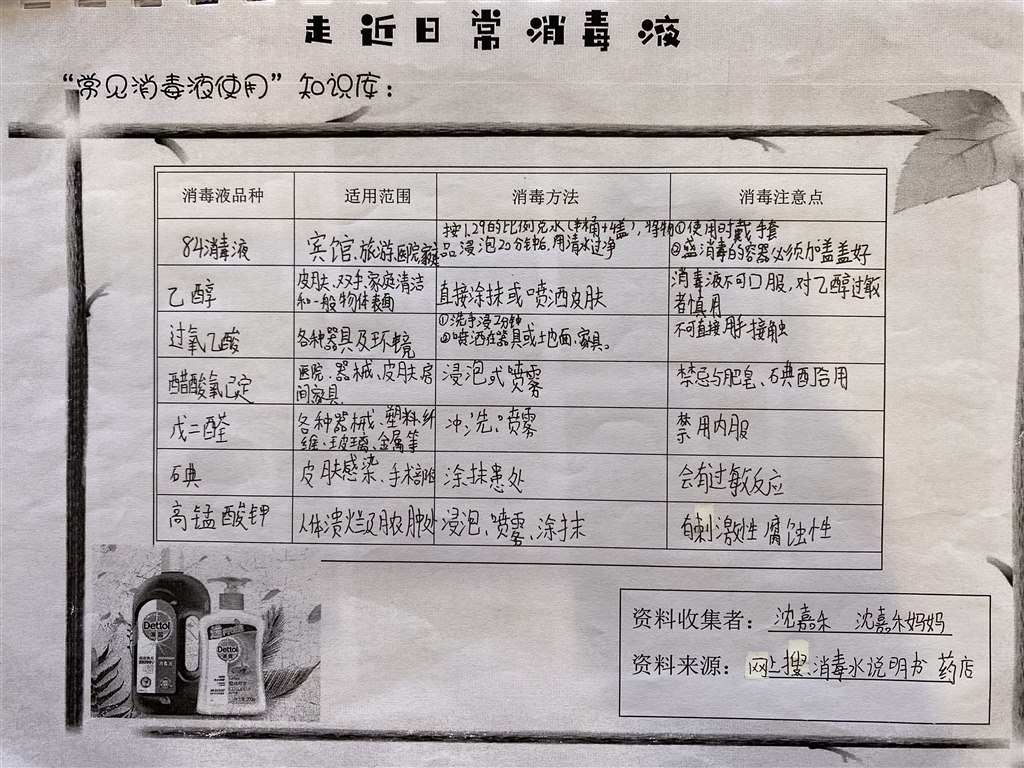 走近日常消毒液
“常见消毒液使用”知识库：
消毒液品种 适用范围 消毒方法 消毒注意点
84消毒液 宾馆、旅游、医院、家庭 按1:29的比例兑水(半桶+4盖),将物
品浸泡20分钟后,用清水过净 ①使用时戴手套
②盛消毒的容器必须加盖盖好
乙醇 皮肤、双手、家庭清洁
和一般物体表面 直接涂抹或喷洒皮肤 消毒液不可口服,对乙醇过敏
者慎用
过氧乙酸 各种器具及环境 ①洗手浸2分钟
②喷洒在器具或地面、家具。 不可直接用手接触
醋酸氯已定 医院、器械、皮肤、房
间家具 浸泡式喷雾 禁忌与肥皂、碘配合用
戊二醛 各种器械、塑料、纤
维、玻璃、金属等 冲洗、喷雾 禁用内服
碘 皮肤感染、手术部位 涂抹患处 会有过敏反应
高锰酸钾 人体溃烂及脓肿处 浸泡、喷雾、涂抹 有刺激性腐蚀性
Dettol
Dettol
资料收集者：沈嘉禾 沈嘉禾妈妈
资料来源：网上搜、消毒水说明书 药店